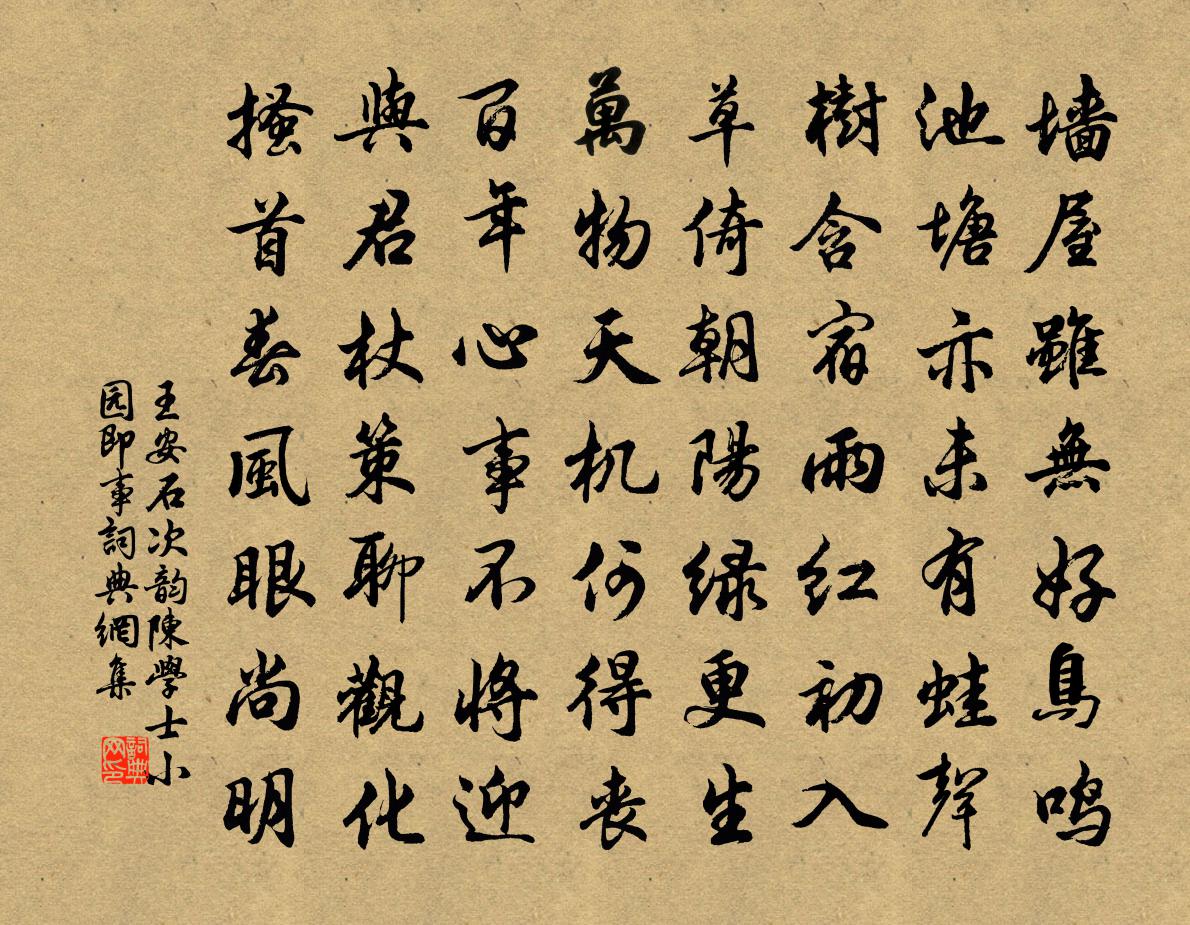 墙屋雖無好鳥鳴
池塘亦未有蛙聲
樹含宿雨红初入
草倚朝陽绿更生
萬物天机何得丧
百年心事不將迎
與君杖策聊觀化
搔首春風眼尚明
王安石次韵陳學士小
园即事詞典網集
詞典网印